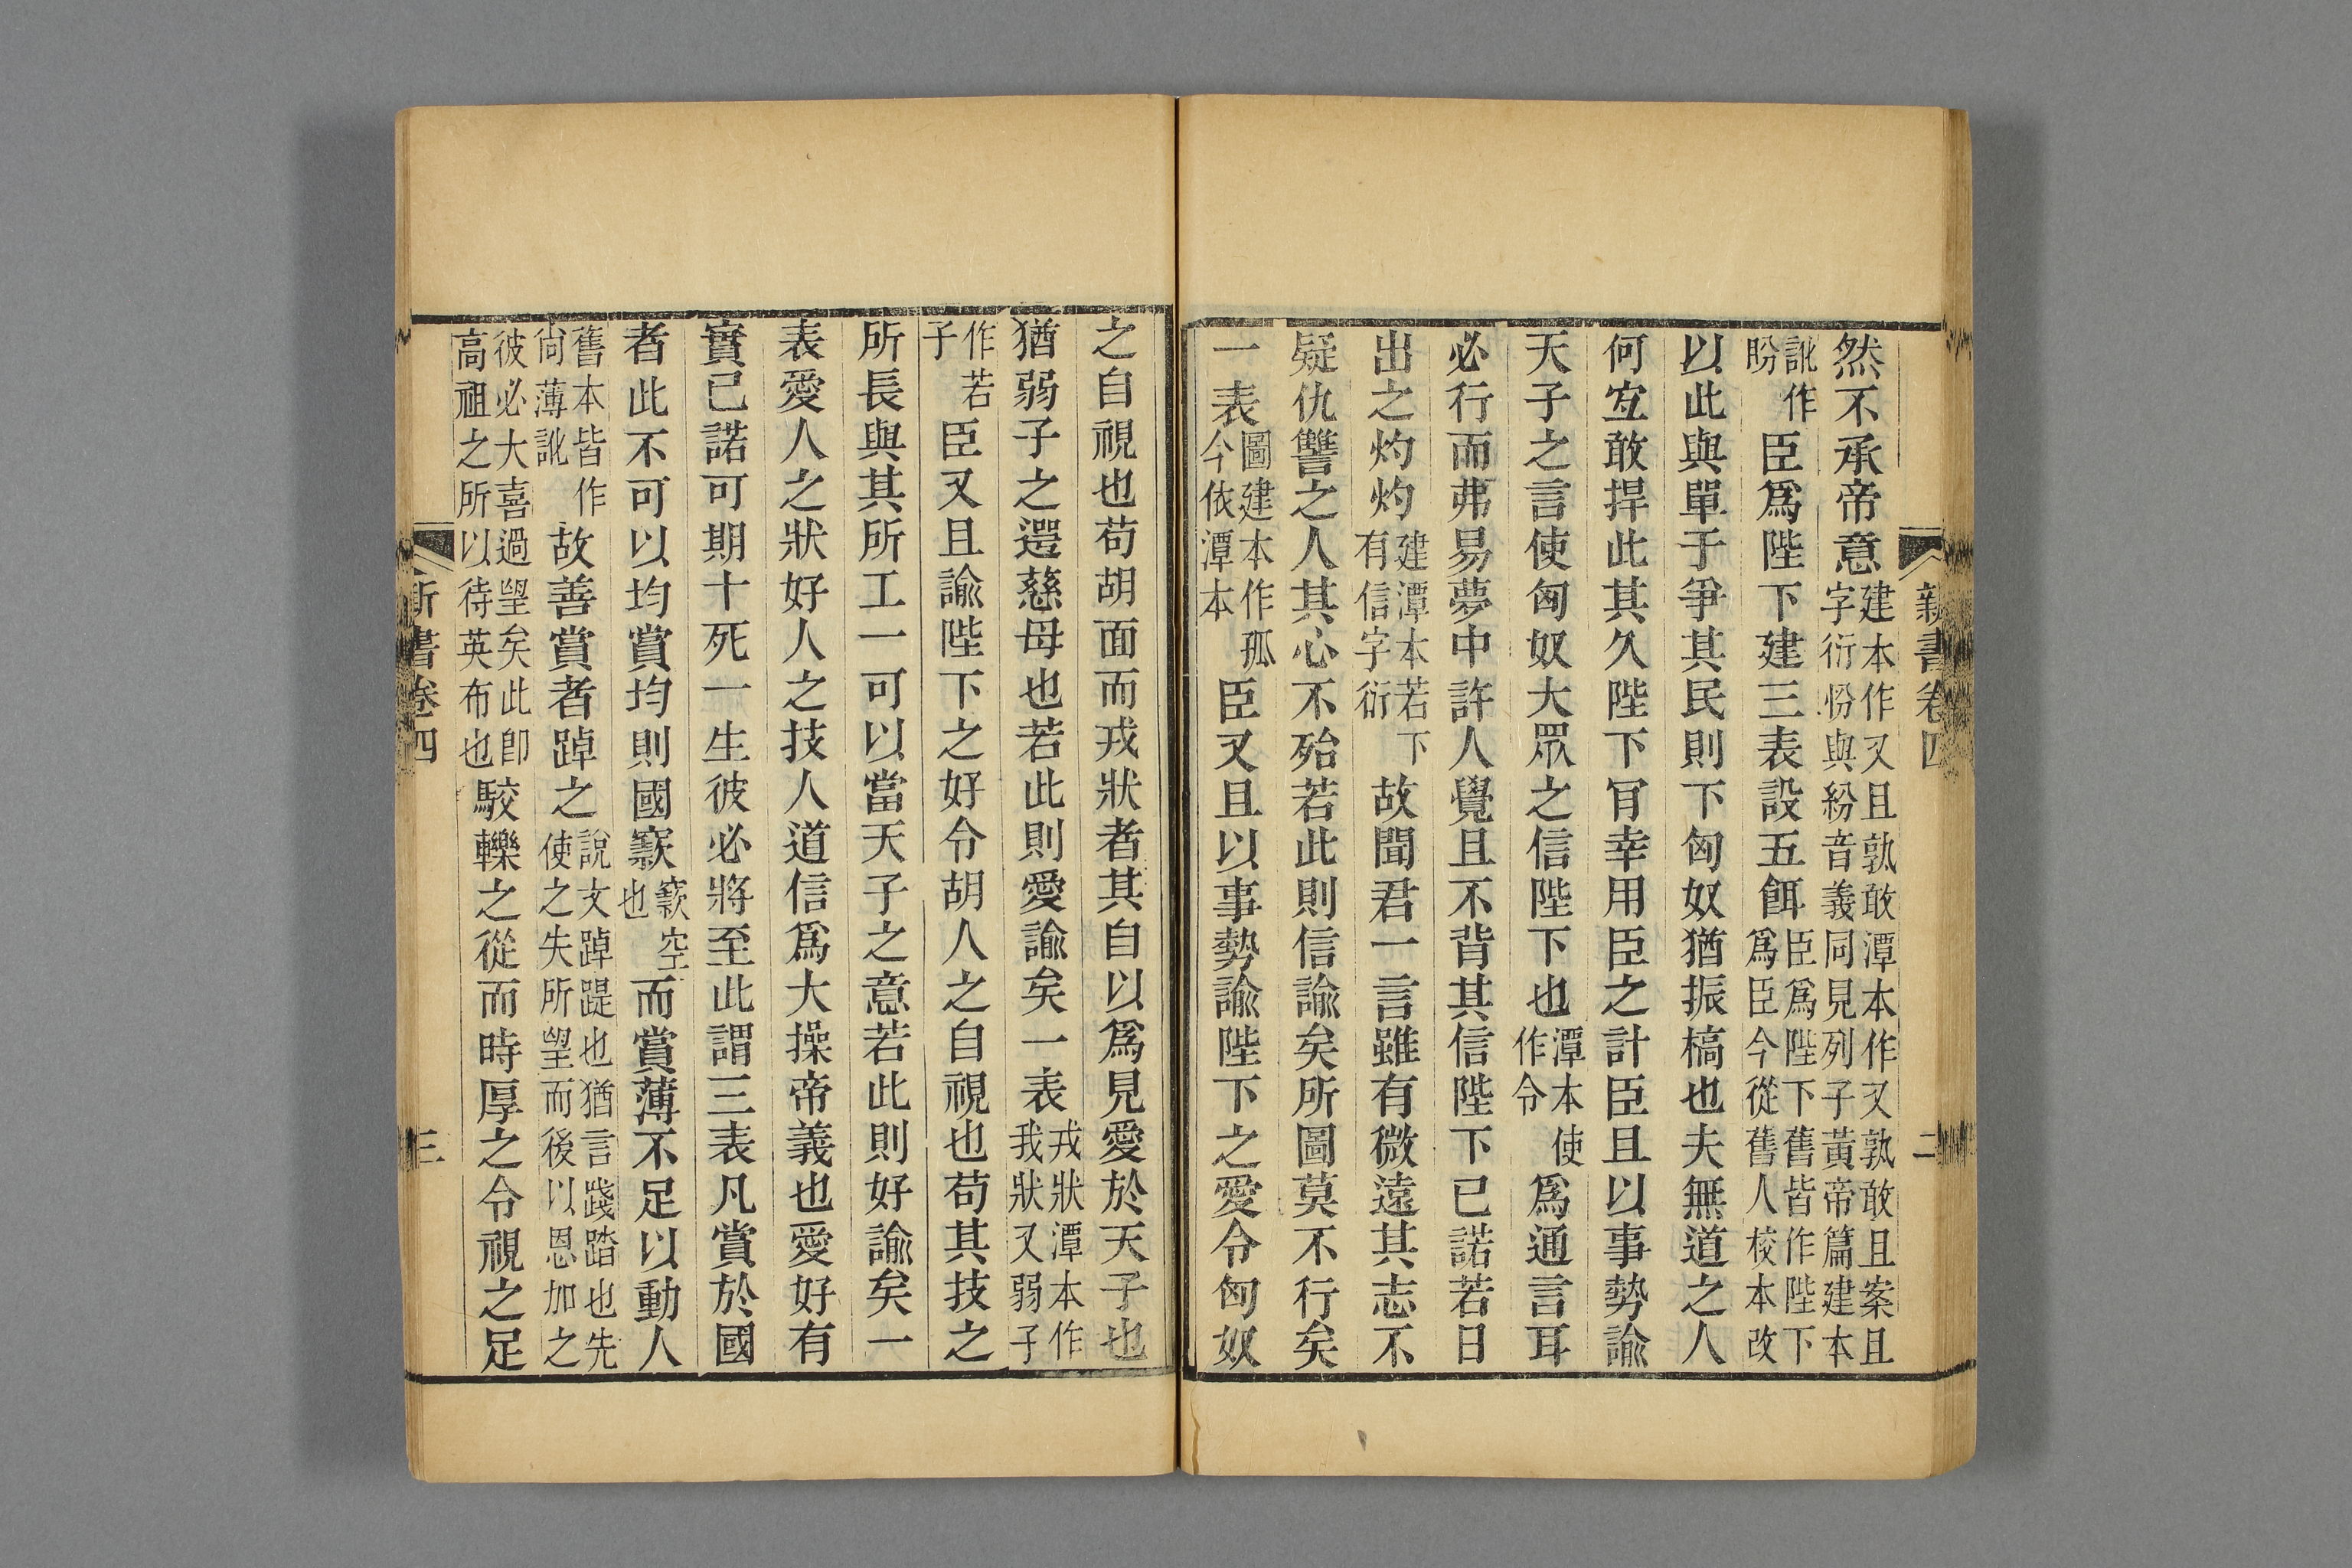 新書卷四
二
然不承帝意建本作又且孰敢潭本作又孰敢且案且字衍㤋與紛音義同見列子黃帝篇建本
訛作盼臣爲陛下建三表設五餌臣爲陛下舊皆作陛下爲臣今從舊人校本改
以此與單于爭其民則下匈奴猶振槁也夫無道之人
何宐敢捍此其久陛下肎幸用臣之計臣且以事勢諭
天子之言使匈奴大眾之信陛下也潭本使作令爲通言耳
必行而弗易夢中許人覺且不背其信陛下已諾若日
出之灼灼建潭本若下有信字衍故聞君一言雖有微遠其志不
疑仇讐之人其心不殆若此則信諭矣所圖莫不行矣
一表圖建本作孤今依潭本臣又且以事勢諭陛下之愛令匈奴
之自視也苟胡面而戎狀者其自以爲見愛於天子也
猶弱子之遻慈母也若此則愛諭矣一表戎狀潭本作我狀又弱子
作若子臣又且諭陛下之好令胡人之自視也苟其技之
所長與其所工一可以當天子之意若此則好諭矣一
表愛人之狀好人之技人道信爲大操帝義也愛好有
實已諾可期十死一生彼必將至此謂三表凡賞於國
者此不可以均賞均則國窾窾空也而賞薄不足以動人
舊本皆作尙薄訛故善賞者踔之說文踔踶也猶言踐踏也先使之失所望而後以恩加之
彼必大喜過望矣此卽高祖之所以待英布也駮轢之從而時厚之令視之足
新書卷四
三